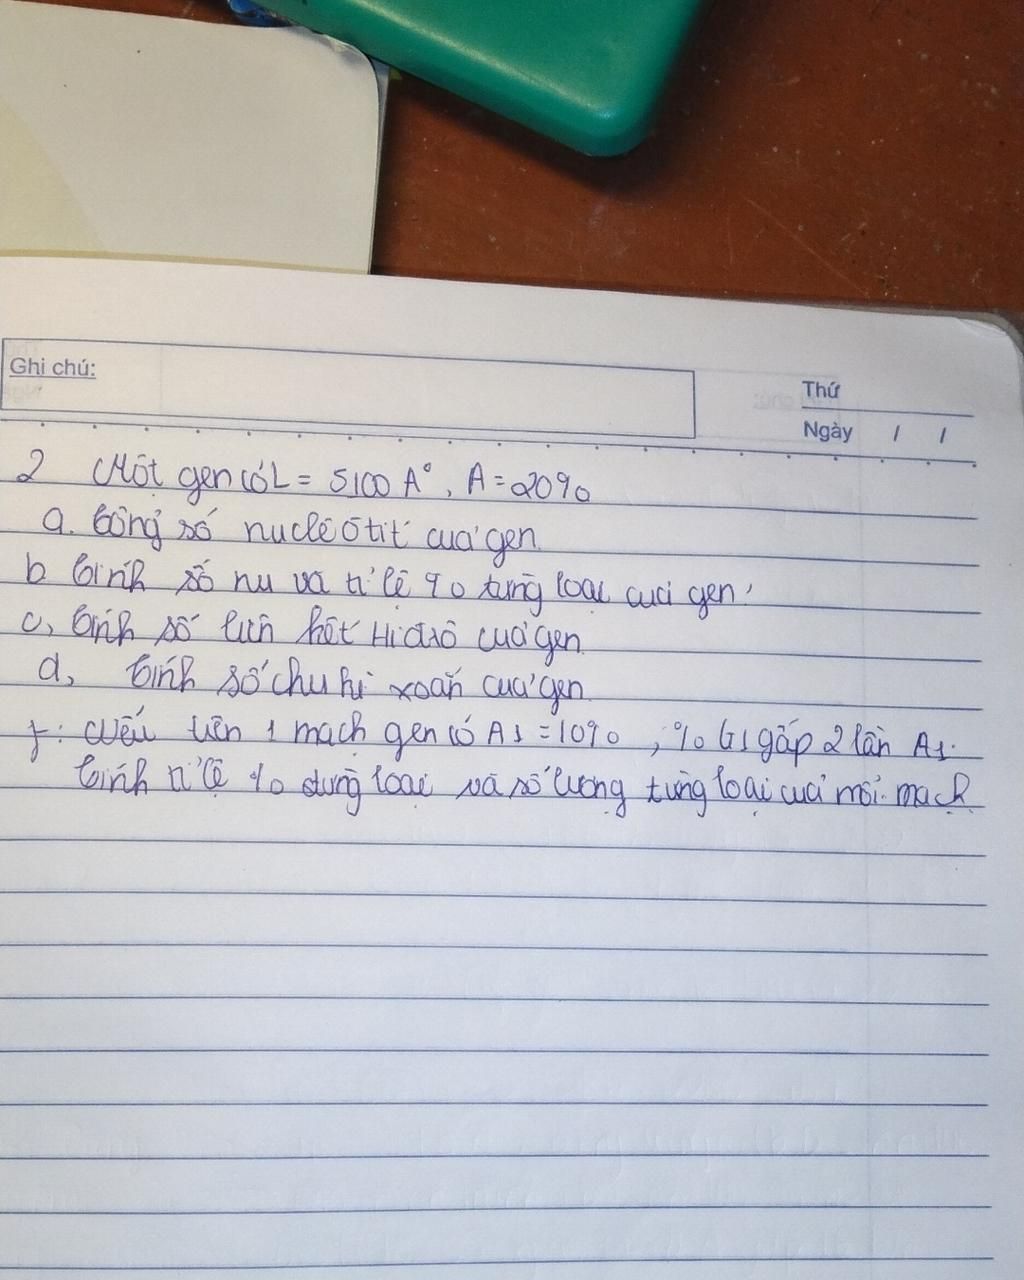 Ghi chú:
Thứ
Ngày / /
2 Một gen có L = 5100 A°, A = 20%
a. Tổng số nuclêôtit của gen
b Tính số nu và tỉ lệ % từng loại của gen
c, Tính số liên kết Hiđrô của gen
d, Tính số chu kì xoắn của gen
f: Nếu trên 1 mạch gen có A1 = 10%, % G1 gấp 2 lần A1.
Tính tỉ lệ % từng loại và số lượng từng loại của mỗi mạch